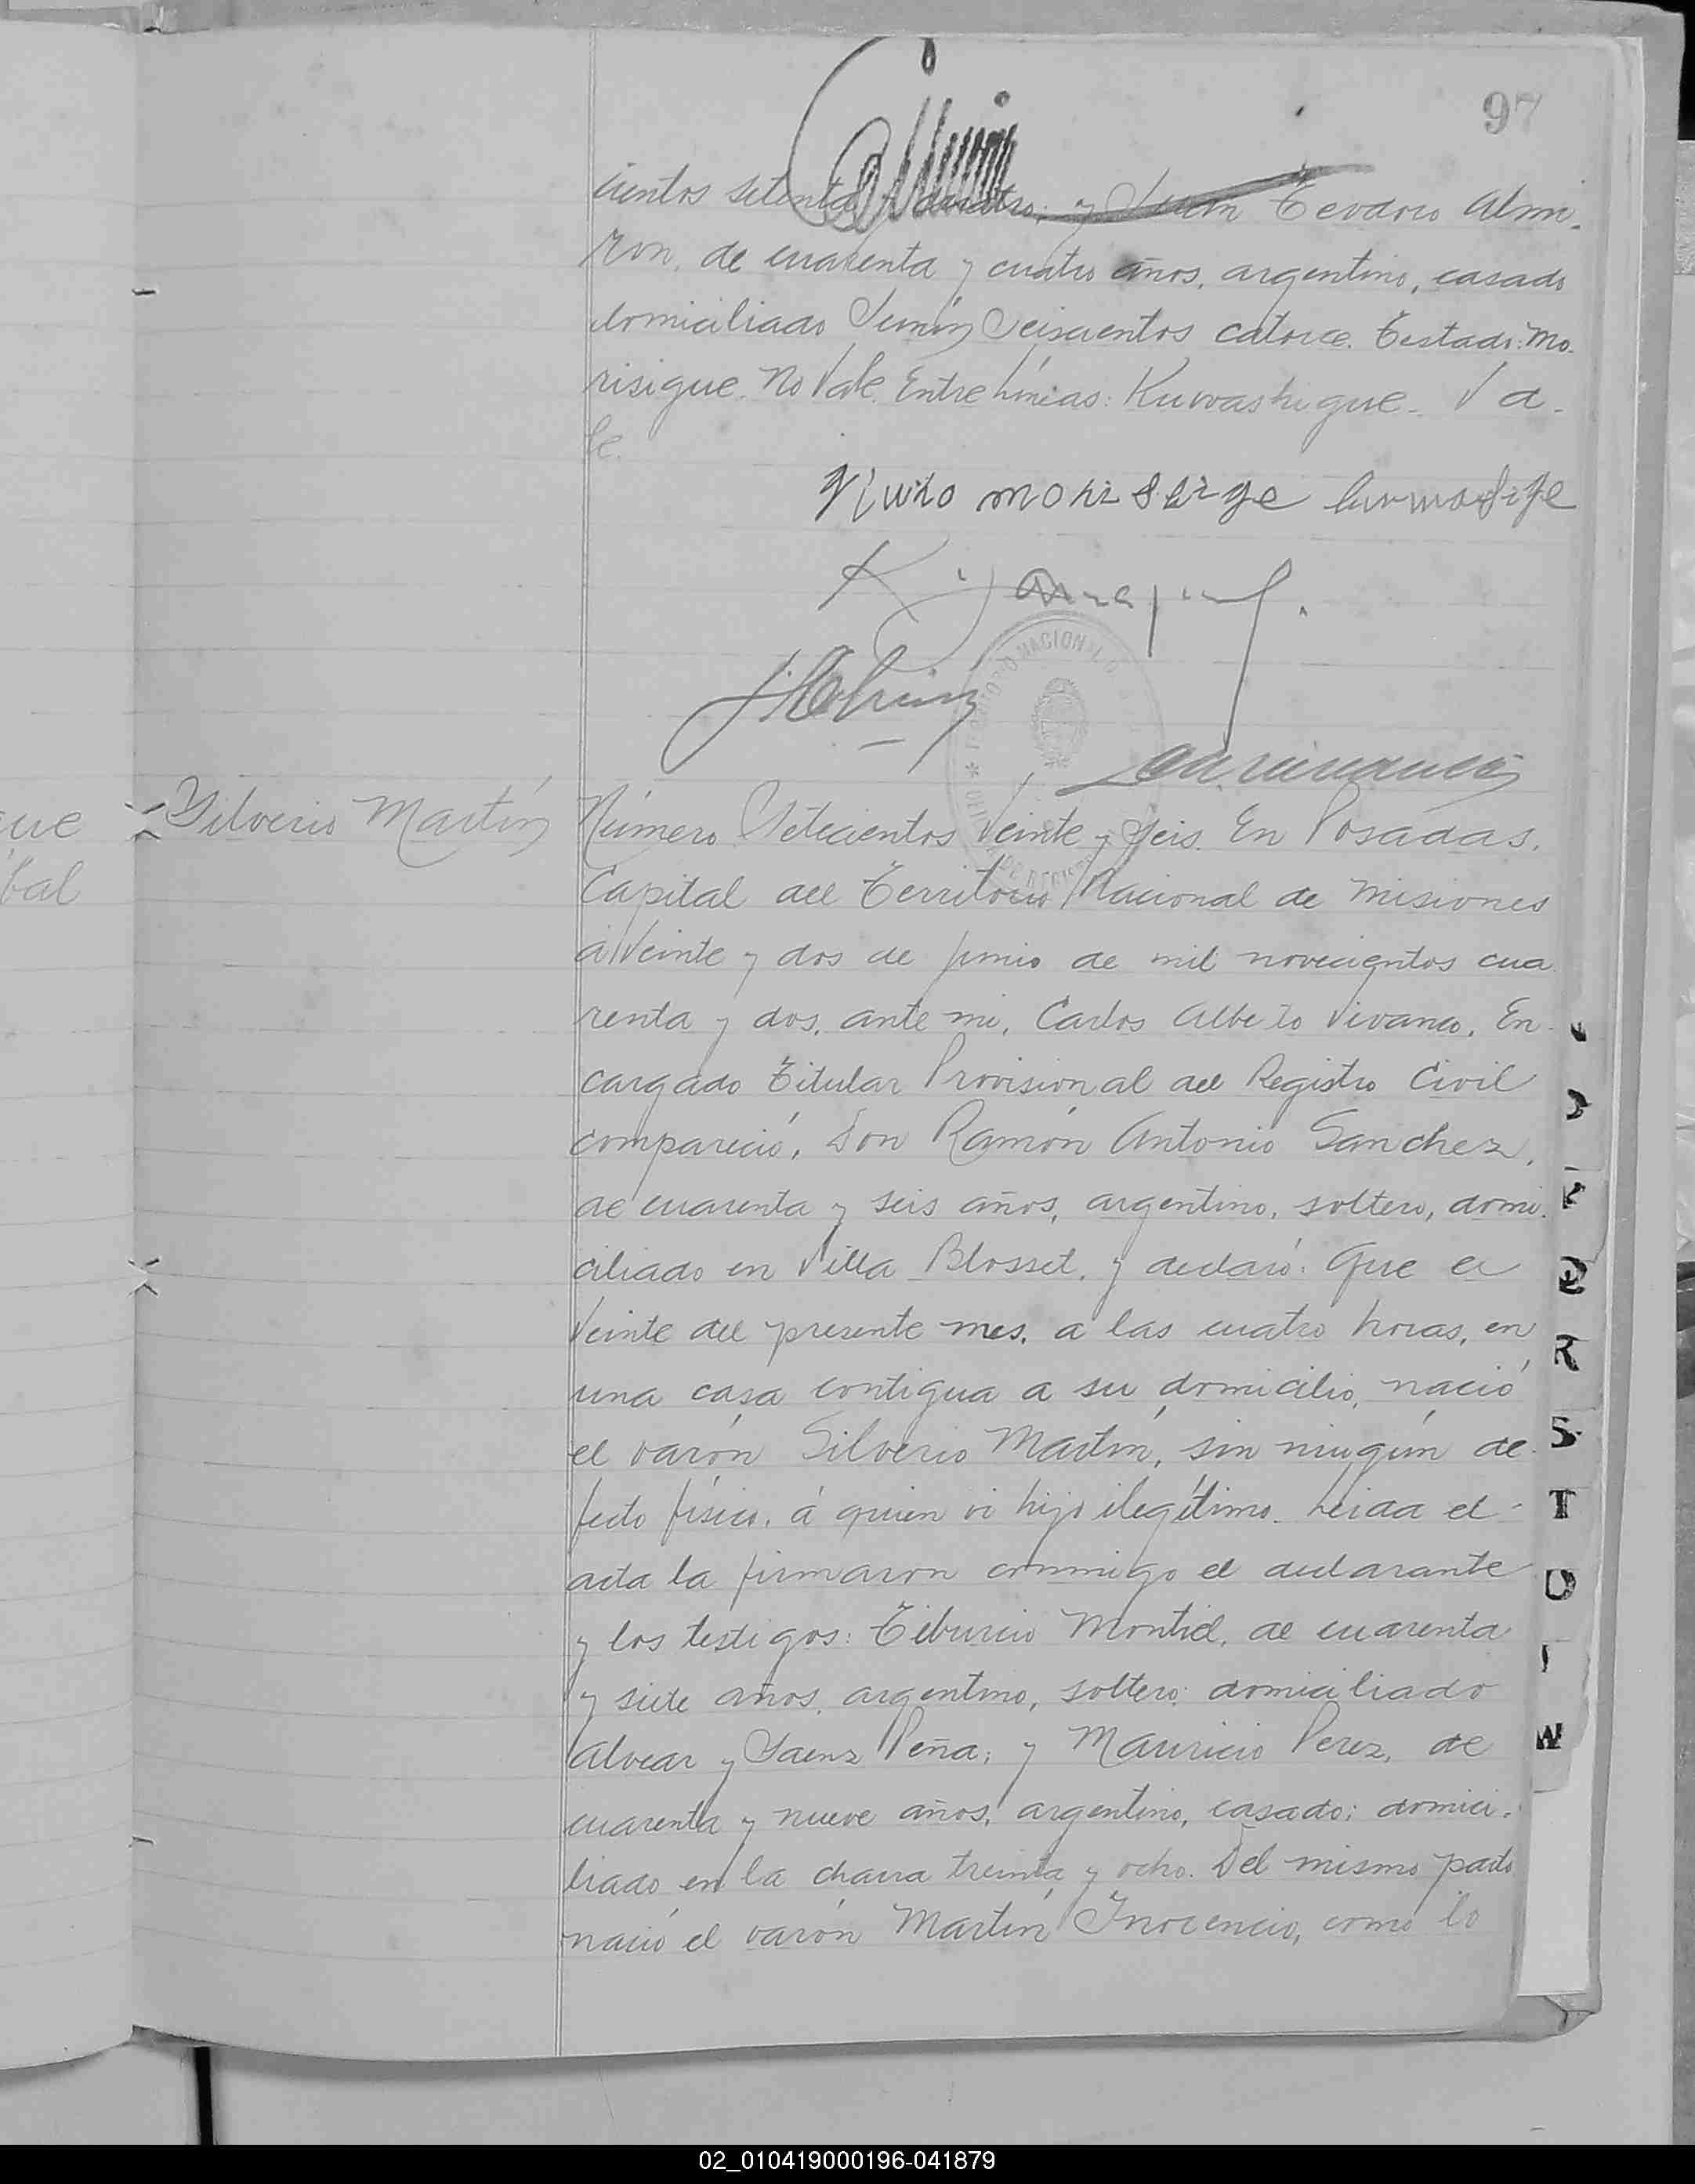 97
cientos setenta y cuatro; y Juan Teodoro Almi-
ron, de cuarenta y cuatro años, argentino, casado
domiciliado Junín Seiscientos catorce. Testado: Mo-
risigue. No Vale. Entre líneas: Kuwashigue. Va-
le.
Silverio Martín
Número Setecientos Veinte y Seis. En Posadas,
Capital del Territorio Nacional de Misiones
á Veinte y dos de Junio de mil novecientos cua
renta y dos, ante mi, Carlos Alberto Vivanco, En-
cargado Titular Provisional del Registro Civil
compareció, Don Ramón Antonio Sanchez,
de cuarenta y seis años, argentino, soltero, domi-
ciliado en Villa Blosset, y declaró: Que el
Veinte del presente mes, a las cuatro horas, en
una casa contigua a su domicilio, nació
el varón Silverio Martín, sin ningún de-
fecto físico, á quien vi hijo ilegítimo. Leida el
acta la firmaron conmigo el declarante
y los testigos: Tiburcio Montiel, de cuarenta
y siete años, argentino, soltero; domiciliado
Alvear y Saenz Peña; y Mauricio Perez, de
cuarenta y nueve años, argentino, casado; domici-
liado en la chacra treinta y ocho. Del mismo parto
nació el varón Martín Inocencio, como lo
R
S
T
W
02_010419000196-041879